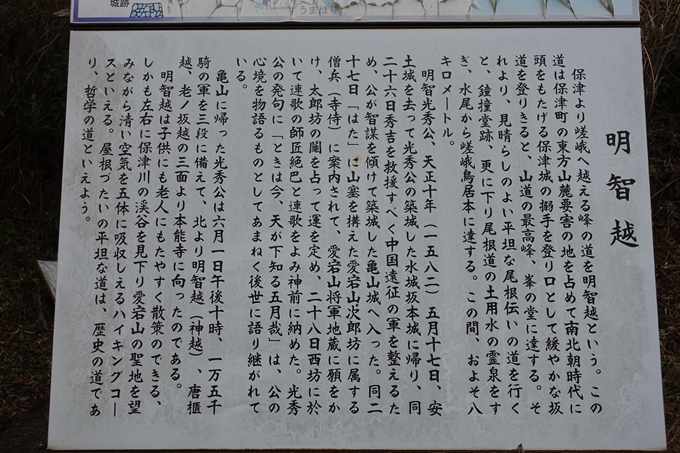 城跡
うまほり
明智越
保津より嵯峨へ越える峰の道を明智越という。この
道は保津町の東方山麓要害の地を占めて南北朝時代に
頭をもたげる保津城の搦手を登り口として緩やかな坂
道を登りきると、山道の最高峰、峯の堂に達する。そ
れより、見晴らしのよい平坦な尾根伝いの道を行く
と、鐘撞堂跡、更に下り尾根道の土用水の霊泉をす
ぎ、水尾から嵯峨鳥居本に達する。この間、およそ八
キロメートル。
明智光秀公、天正十年（一五八二）五月十七日、安
土城を去って光秀公の築城した水城坂本城に帰り、同
二十六日秀吉を救援すべく中国遠征の軍を整えるた
め、公が智謀を傾けて築城した亀山城へ入った。同二
十七日「はた」に山塞を構えた愛宕山次郎坊に属する
僧兵（寺侍）に案内されて、愛宕山将軍地蔵に願をか
け、太郎坊の鬮を占って運を定め、二十八日西坊に於
いて連歌の師匠紹巴と連歌をよみ神前に納めた。光秀
公の発句に「ときは今、天が下知る五月哉」は、公の
心境を物語るものとしてあまねく後世に語り継がれて
いる。
亀山に帰った光秀公は六月一日午後十時、一万五千
騎の軍を三段に備えて、北より明智越（神越）、唐櫃
越、老ノ坂越の三面より本能寺に向ったのである。
明智越は子供にも老人にもたやすく散策のできる、
しかも左右に保津川の渓谷を見下り愛宕山の聖地を望
みながら清い空気を五体に吸収しえるハイキングコー
スといえる。屋根づたいの平坦な道は、歴史の道であ
り、哲学の道といえよう。